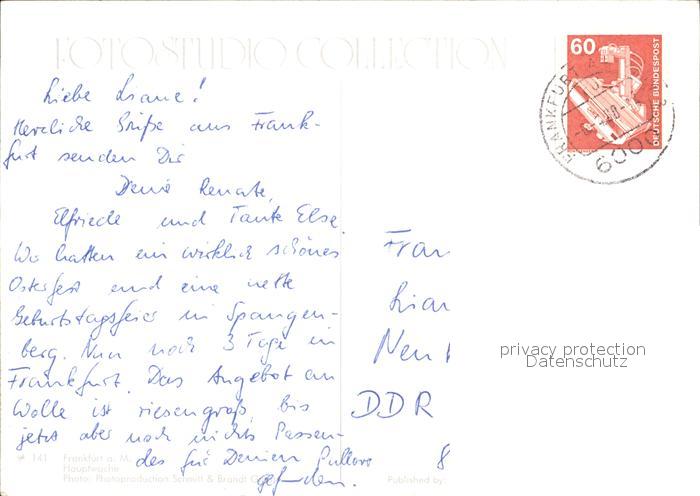 FOTOSTUDIO COLLECTION
60
DEUTSCHE BUNDESPOST
FRANKFURT
6000
Liebe
Herzliche Grüße aus Frank-
furt senden Dir
Deine Renate,
Elfriede und Tante Else.
Wir hatten ein wirklich schönes
Osterfest und eine nette
Geburtstagsfeier in Spangen-
berg. Nun noch 3 Tage in
Frankfurt. Das Angebot an
Wolle ist riesengroß, bis
jetzt aber noch nichts Passen-
des für Deinen Pullover
gefunden.
Frau
DDR
8
privacy protection
Datenschutz
141 Frankfurt a. M.
Hauptwache
Photo: Photoproduction Schmitt & Brandt
Published by: